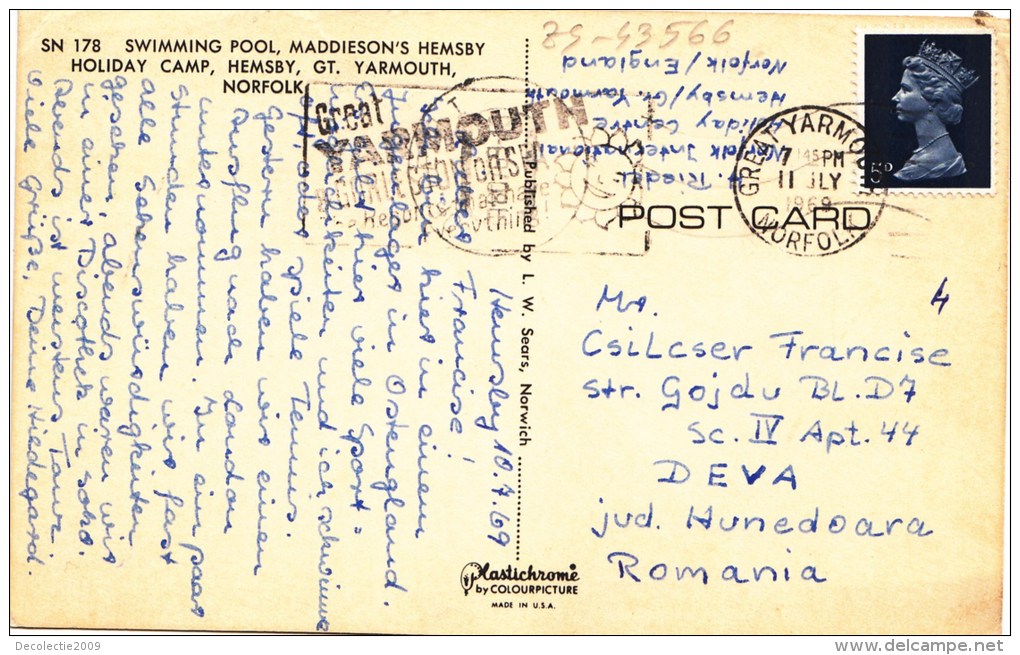 SN 178 SWIMMING POOL, MADDIESON'S HEMSBY
HOLIDAY CAMP, HEMSBY, GT. YARMOUTH,
NORFOLK
ZG-43566
Riedel
Norfolk International
Holiday Centre
Hemsby/Gt. Yarmouth
Norfolk/England
Great
YARMOUTH
GREAT YARMOUTH
7 45 PM
11 JLY
1969
NORFOLK
5D
POST CARD
Published by L. W. Sears, Norwich
Hemsby 10.7.69
Francise!
hier in einem
in Ostengland.
hier viele Sport=
und ich schwimme
oder spiele Tennis.
Gestern haben wir einen
Ausflug nach London
unternommen. In ein paar
Stunden haben wir fast
alle Sehenswürdigkeiten
gesehen, abends waren wir
in einer Discothek in Soho.
Abends ist meistens Tanz.
Viele Grüße, Deine Hildegard.
4
Mr.
CsiLcser Francise
str. Gojdu BL.D7
Sc. IV Apt. 44
DEVA
jud. Hunedoara
Romania
Plastichrome
by COLOURPICTURE
MADE IN U.S.A.
Decolectie2009
www.delcampe.net